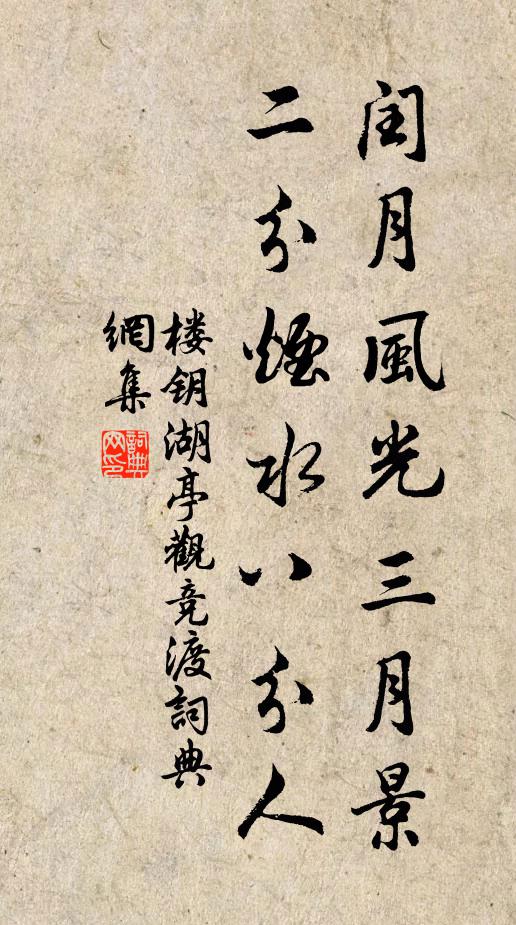 闰月風光三月景
二分煙水八分人
楼钥湖亭觀竞渡詞典
網集
詞典
网印